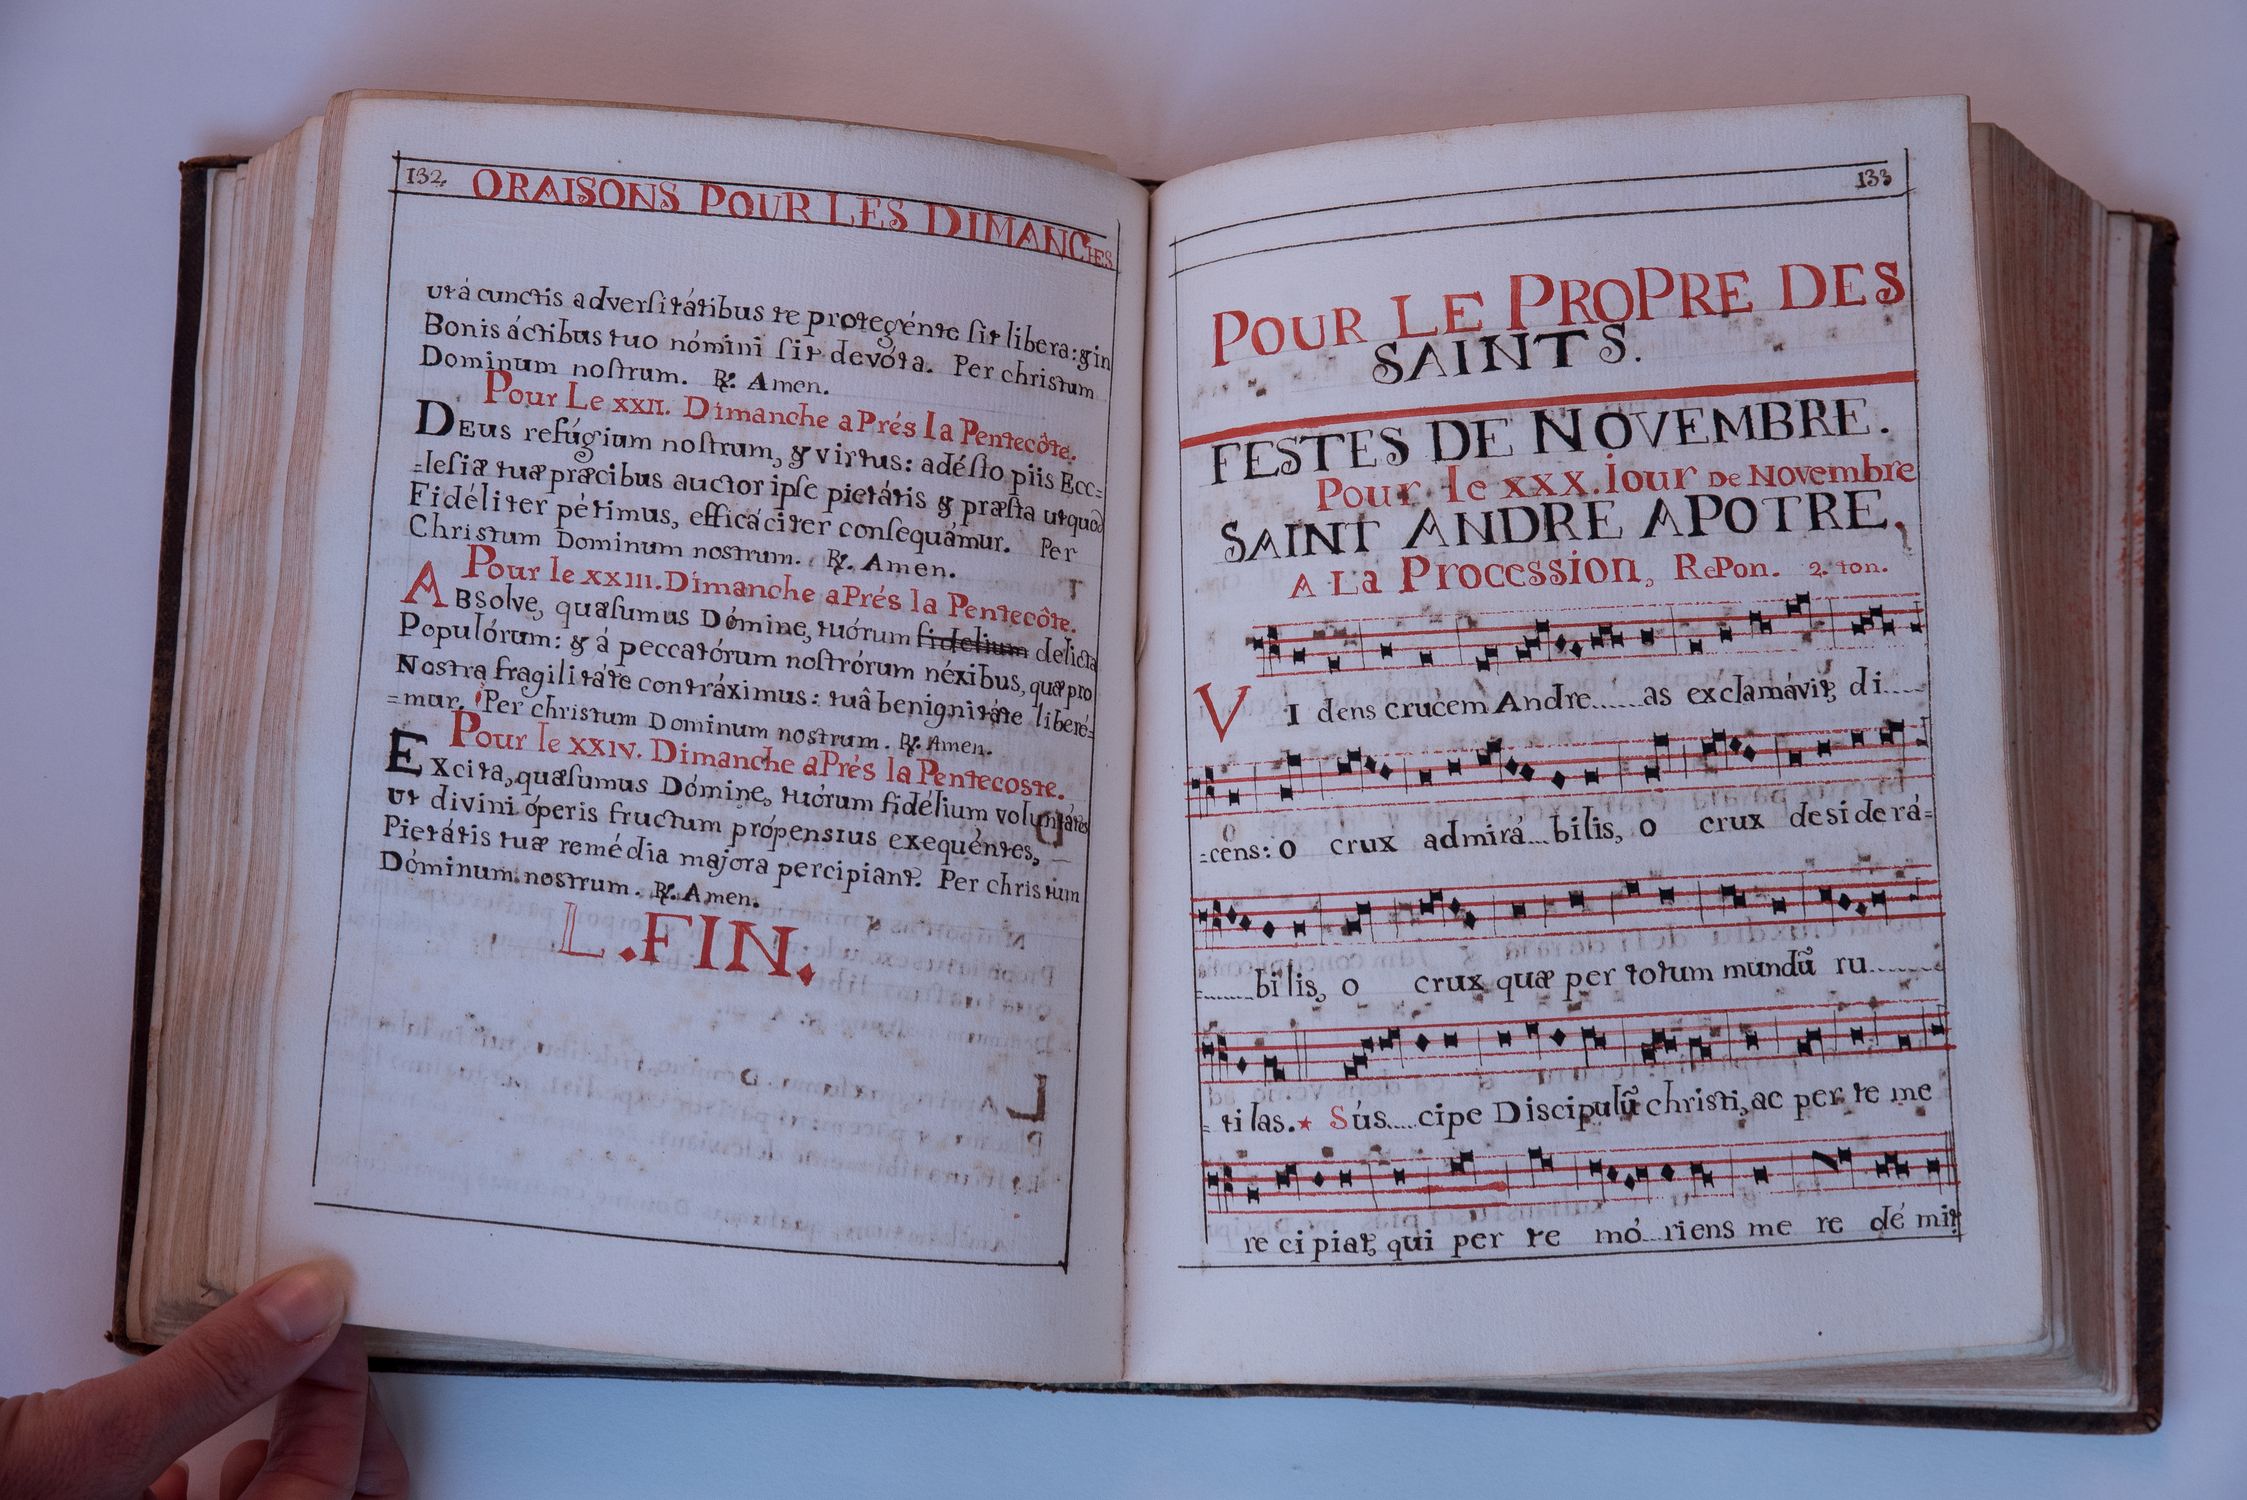 132.
ORAISONS POUR LES DIMANCHES
utá cunctis adversitátibus te protegénte sit libera: & in
Bonis áctibus tuo nómini sit devóta. Per christum
Dominum nostrum. ℟. Amen.
Pour Le XXII. Dimanche aPrés la Pentecôte.
DEus refúgium nostrum, & virtus: adésto piis Ecc=
=lesiæ tuæ præcibus auctor ipse pietátis & præsta ut quod
Fidéliter pétimus, efficáciter consequámur. Per
Christum Dominum nostrum. ℟. Amen.
Pour le XXIII. Dimanche aPrés la Pentecôte.
ABsolve, quæsumus Dómine, tuórum fidelium delicta
Populórum: & á peccatórum nostrórum néxibus, quæ pro
Nostra fragilitáte contráximus: tuâ benignitáte liberé=
=mur. Per christum Dominum nostrum. ℟. Amen.
Pour le XXIV. Dimanche aPrés la Pentecoste.
EXcita, quæsumus Dómine, tuórum fidélium voluntátes
ut divini óperis fructum própensius exequéntes,
Pietátis tuæ remédia majora percipiant. Per christum
Dóminum nostrum. ℟. Amen.
L.FIN.
133
POUR LE PROPRE DES
SAINTS.
FESTES DE NOVEMBRE.
Pour le XXX. Iour DE Novembre
SAINT ANDRE APOTRE,
A La Procession, RePon. 2. ton.
VI dens crucem Andre......as exclamávit, di....
=cens: o crux admirá...bilis, o crux desi de rá=
.......bi lis, o crux quæ per totum mundũ ru.......
= ti las.* Sús....cipe Discipulũ christi, ac per te me
re ci piat, qui per te mó...riens me re dé mit,